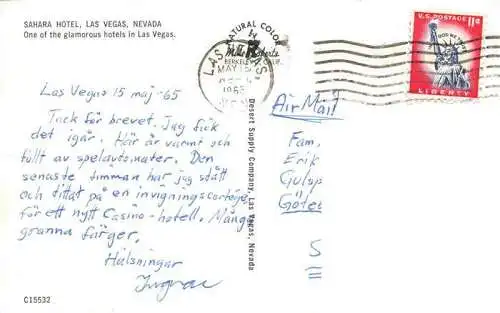 SAHARA HOTEL, LAS VEGAS, NEVADA
One of the glamorous hotels in Las Vegas.
NATURAL COLOR
BERKELEY, CALIF.
LAS
MAY 15
1965
U.S. POSTAGE 11¢
IN GOD WE TRUST
LIBERTY
Las Vegas 15 maj -65
Tack för brevet. Jag fick
det igår. Här är varmt och
fullt av spelautomater. Den
senaste timman har jag stått
och tittat på en invigningscortège
för ett nytt Casino-hotell. Många
granna färger.
Hälsningar
Desert Supply Company, Las Vegas, Nevada
Air Mail
Fam.
Erik
Gulys
Göte
S
C15532